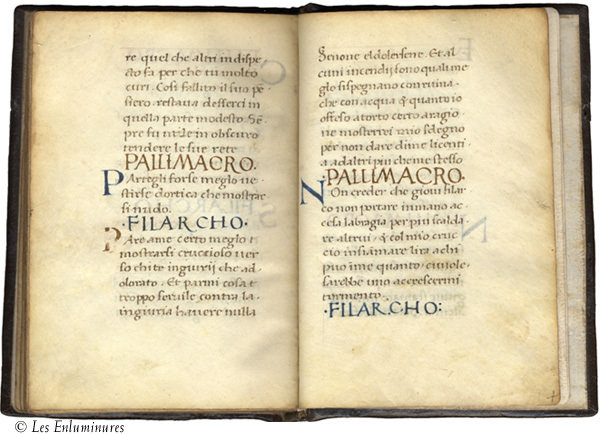 re quel che altri in dispe-
cto fa per che tu molto
curi. Cosi fallito il suo pe-
siero restaua desserci in
quella parte modesto Sē-
pre fu utile in obscuro
tendere le sue rete
PALLIMACRO.
PArtegli forse meglo ue-
stirse dortica che mostrar-
si nudo.
·FILARCHO·
PAreame certo meglo ti
mostrarsi cruccioso uer-
so chi te ingiurij che ad-
dolorato. Et parmi cosa t
troppo seruile contra la-
ingiuria hauere nulla
Senone el dolersene. Et al
cuni incendij sono qual me
glo si spegnano con ruina-
che con acqua & quanto io
offeso a torto certo aragio
ne mostrerei mio sdegno
per non dare dime licenti
a adaltri piu che me stesso
PALLIMACRO.
NOn creder che gioui filar
co non portare in mano ac-
cesa labragia per piu scalda
re altrui & col mio cruc
cio infiamare lira a chi
puo ime quanto ci uole
sarebbe uno accrescermi
tormento.
·FILARCHO:
© Les Enluminures